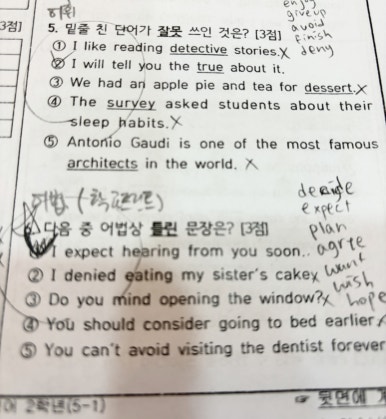 어휘
enjoy
give up
avoid
finish
deny
3점]
5. 밑줄 친 단어가 잘못 쓰인 것은? [3점]
① I like reading detective stories.X
② I will tell you the true about it.
③ We had an apple pie and tea for dessert.X
④ The survey asked students about their
sleep habits.X
⑤ Antonio Gaudi is one of the most famous
architects in the world. X
어법 (학교프린트)
decide
expect
plan
agree
want
wish
hope
6. 다음 중 어법상 틀린 문장은? [3점]
① I expect hearing from you soon.
② I denied eating my sister's cake.X
③ Do you mind opening the window?X
④ You should consider going to bed earlier.X
⑤ You can't avoid visiting the dentist forever
어 2학년(5-1)
☞ 뒷면에